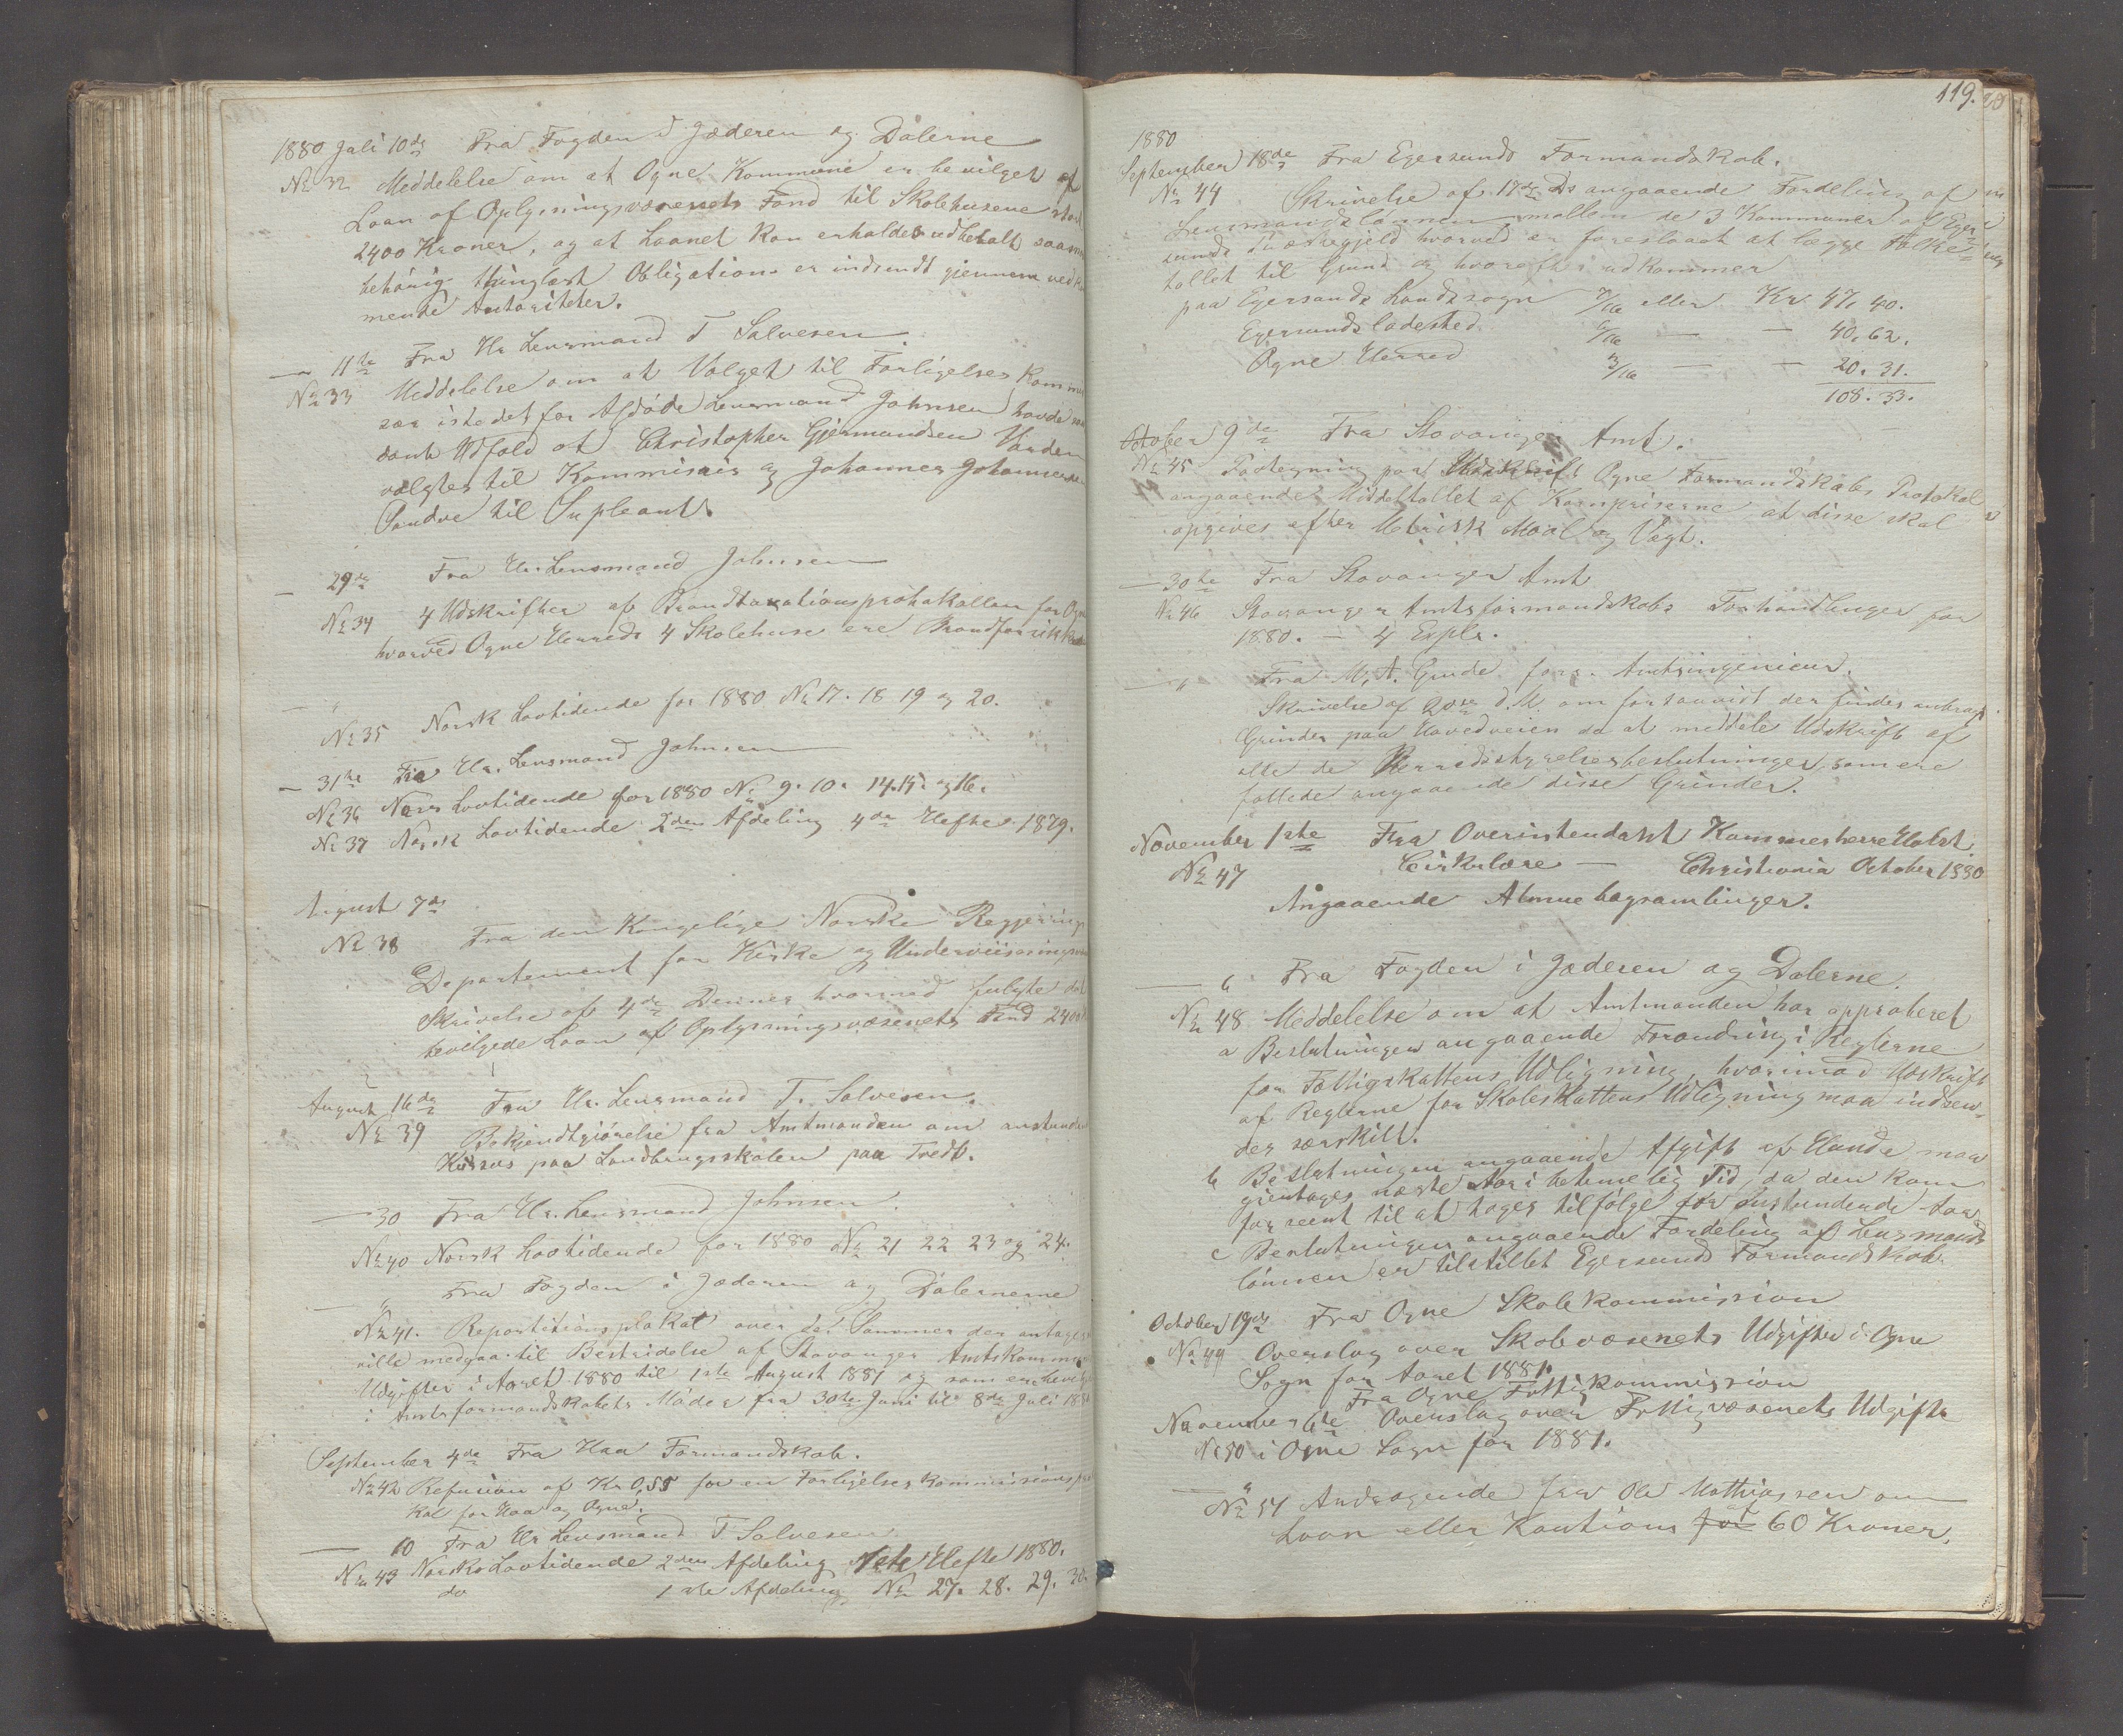 1880 Juli 10de Fra Fogden i Jæderen og Dalerne
No 32 Meddelelse om at Ogne Kommune er bevilget et
Laan af Oplysningsvæsenets Fond til Skolehusene stort
2400 Kroner, og at Laanet kan erholdes udbetalt saasnart
behørig thinglæst Obligation er indsendt gjennem vedkom
mende Autoriteter.
— 11te Fra Hr Lensmand T Salvesen
No 33 Meddelelse om at Valget til Forligelses Kommis
sær istedet for Afdøde Lensmand Johnsen havde
saadant Udfald at Christopher Gjermundsen Varden
valgtes til Kommisair og Johannes Johannessen
Sandve til Supleant.
— 29de Fra Hr. Lensmand Johnsen
No 34 4 Udskrifter af Brandtaxationsprotokollen for Ogne
hvorved Ogne Herreds 4 Skolehuse ere Brandforsikkrede
— "
No 35 Norsk Lovtidende for 1880 No 17. 18 19 og 20.
— 31te Fra Hr. Lensmand Johnsen
No 36 Norsk Lovtidende for 1880 No 9. 10. 14. 15. og 16.
No 37 Norsk Lovtidende 2den Afdeling 4de Hefte 1879.
August 7de
No 38 Fra den Kongelige Norske Regjerings
Departement for Kirke og Underviisningsv
Skrivelse af 4de Dennes hvormed fulgte det
bevilgede Laan af Oplysningsvæsenets Fond 2400
August 16de Fra Hr. Lensmand T. Salvesen.
No 39 Bekjendtgjørelse fra Amtmanden om anstundende
Kursus paa Landbrugsskolen paa Tredt.
— 30 Fra Hr. Lensmand Johnsen.
No 40 Norsk Lovtidende for 1880 No 21 22 23 og 24.
— " Fra Fogden i Jæderen og Dalernerne
No 41. Repartitionsplakat over de Summer der antages
ville medgaa til Bestridelse af Stavanger Amtskommunes
Udgifter i Aaret 1880 til 1ste August 1881 og som ere bevilget
i Amtsformandskabets Møder fra 30te Juni til 8de Juli 1880
September 4de Fra Haa Formandskab.
No 42 Refusion af Kr 0,55 for en Forligelses Kommissionsproto
kol for Haa og Ogne.
— 10 Fra Hr Lensmand T Salvesen
No 43 Norsk Lovtidende 2den Afdeling 1ste Hefte 1880.
do 1ste Afdeling No 27. 28. 29. 30.
119.
1880
September 18de Fra Egersunds Formandskab.
No 44 Skrivelse af 17de Ds angaaende Fordeling af
Lensmandslønnen mellem de 3 Kommuner af Eger=
sunds Præstegjeld hvorved er foreslaaet at lægge Folke=
tallet til Grund og hvorefter udkommer
paa Egersunds Landssogn 7/16 eller Kr. 47. 40.
Egersunds ladested 6/16 — — 40. 62.
Ogne Herred 3/16 — — 20. 31.
108. 33.
October 9de Fra Stavanger Amt.
No 45 Paategning paa Udskrift Ogne Formandskabs Protokol
angaaende Middeltallet af Kornpriserne at disse skal
opgives efter Metrisk Maal og Vægt.
— 30te Fra Stavanger Amt
No 46 Stavanger Amtsformandskabs Forhandlinger for
1880. — 4 Expl.
— " Fra M. A. Grude fors. Amtsingenieur.
Skrivelse af 20de d.M. om forsaavidt der findes anbragt
Grinder paa Hovedveien da at meddele Udskrift af
alle de Herredsstyrelsesbeslutninger som ere
fattede angaaende disse Grinder.
November 1ste Fra Overintendant Kammerherre Holst
No 47 Cirkulære — Christiania October 1880
Angaaende Almuebogsamlinger.
— 6 Fra Fogden i Jæderen og Dalerne.
No 48 Meddelelse om at Amtmanden har approberet
a Beslutningen angaaende Forandring i Reglerne
for Fattigskattens Udligning, hvorimod Udskrift
af Reglerne for Skoleskattens Udligning maa indsen=
des særskilt.
b Beslutningen angaaende Afgift af Hunde maa
gjentages næste Aar i betimelig Tid, da den kom
for seent til at tages tilfølge for anstundende Aar
c Beslutningen angaaende Fordeling af Lensmands
lønnen er tilstillet Egersunds Formandskab.
October 19de Fra Ogne Skolekommission
No 49 Overslag over Skolevæsenets Udgifter i Ogne
Sogn for Aaret 1881.
Fra Ogne Fattigkommission
November 6te Overslag over Fattigvæsenets Udgifter
No 50 i Ogne Sogn for 1881.
— "
No 51 Andragende fra Ole Mathiassen om
Laan eller Kaution for 60 Kroner.